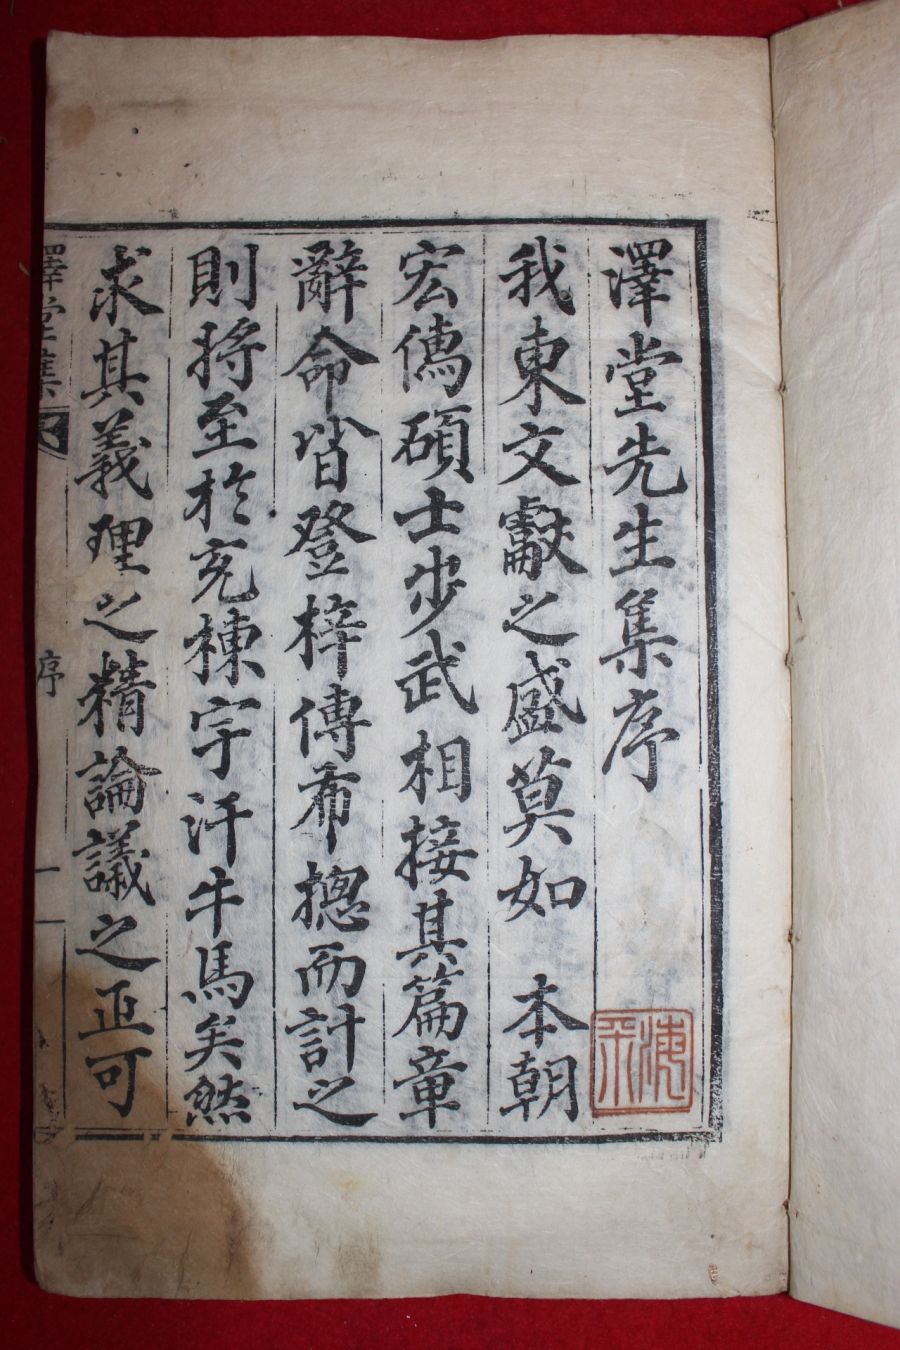 澤堂先生集序
我東文獻之盛莫如　本朝
宏儁碩士步武相接其篇章
辭命皆登梓傳布摠而計之
則將至於充棟宇汗牛馬矣然
求其義理之精論議之正可
澤堂集
序
一